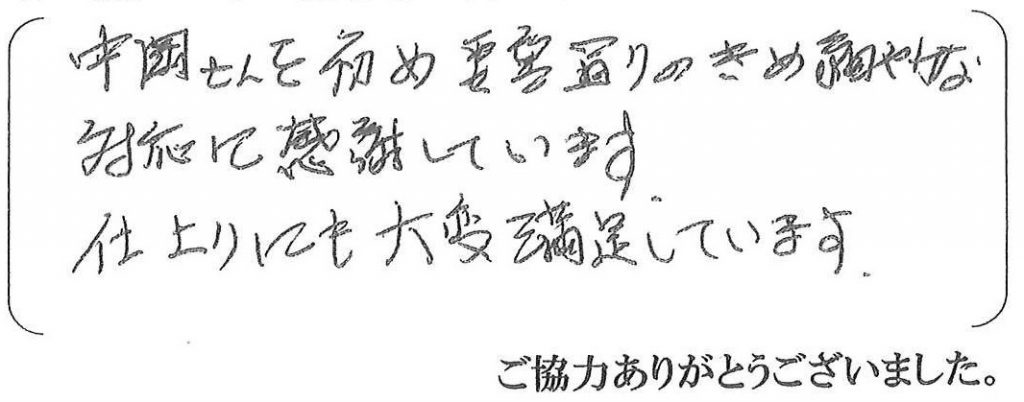 中岡さんを初めりのきめ細やかな
対応に感謝しています
仕上りにも大変満足しています.
ご協力ありがとうございました。